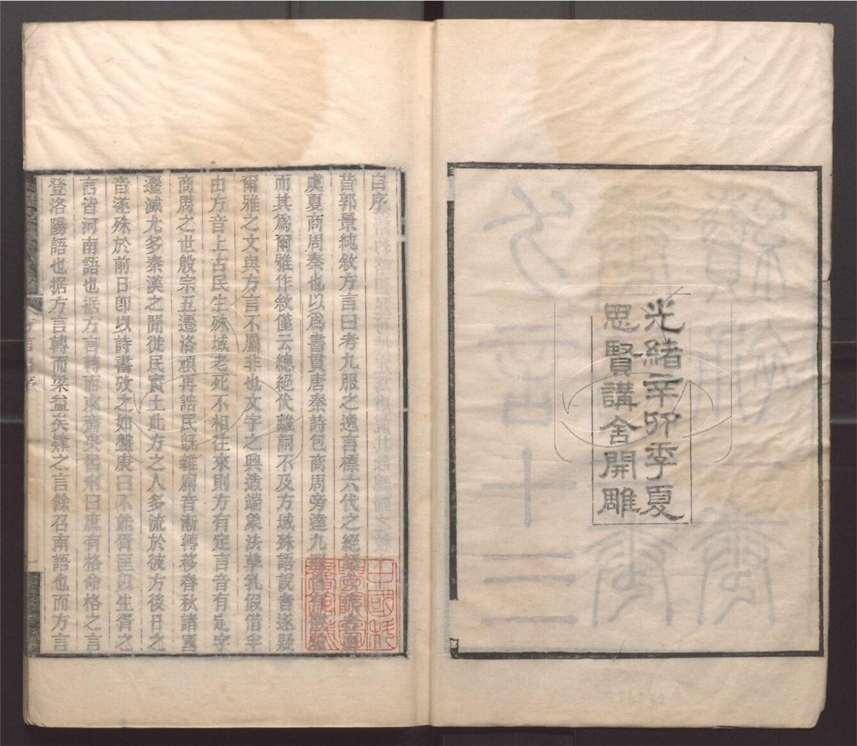 光緒辛卯季夏
思賢講舍開雕
自序
昔郭景純敘方言曰考九服之逸言標六代之絕
虞夏商周秦也以爲書貫唐秦詩包商周旁達九
而其爲爾雅作敘僅云總絕代離詞不及方域殊語說者遂疑
爾雅之文與方言不屬非也文字之興造端象法孳乳假借半
由方音上古民生殊域老死不相往來則方有定言音有定字
商周之世殷宗五遷洛頑再誥民旣雜廁音漸轉移春秋諸國
遷滅尤多秦漢之閒徙民實土此方之人多流於彼方後日之
音遂殊於前日卽以詩書攷之如盤庚曰不能胥匡以生胥之
言皆河南語也据方言轉而東齊矣呂刑曰庶有格命格之言
登洛陽語也据方言轉而梁益矣肄之言餘召南語也而方言